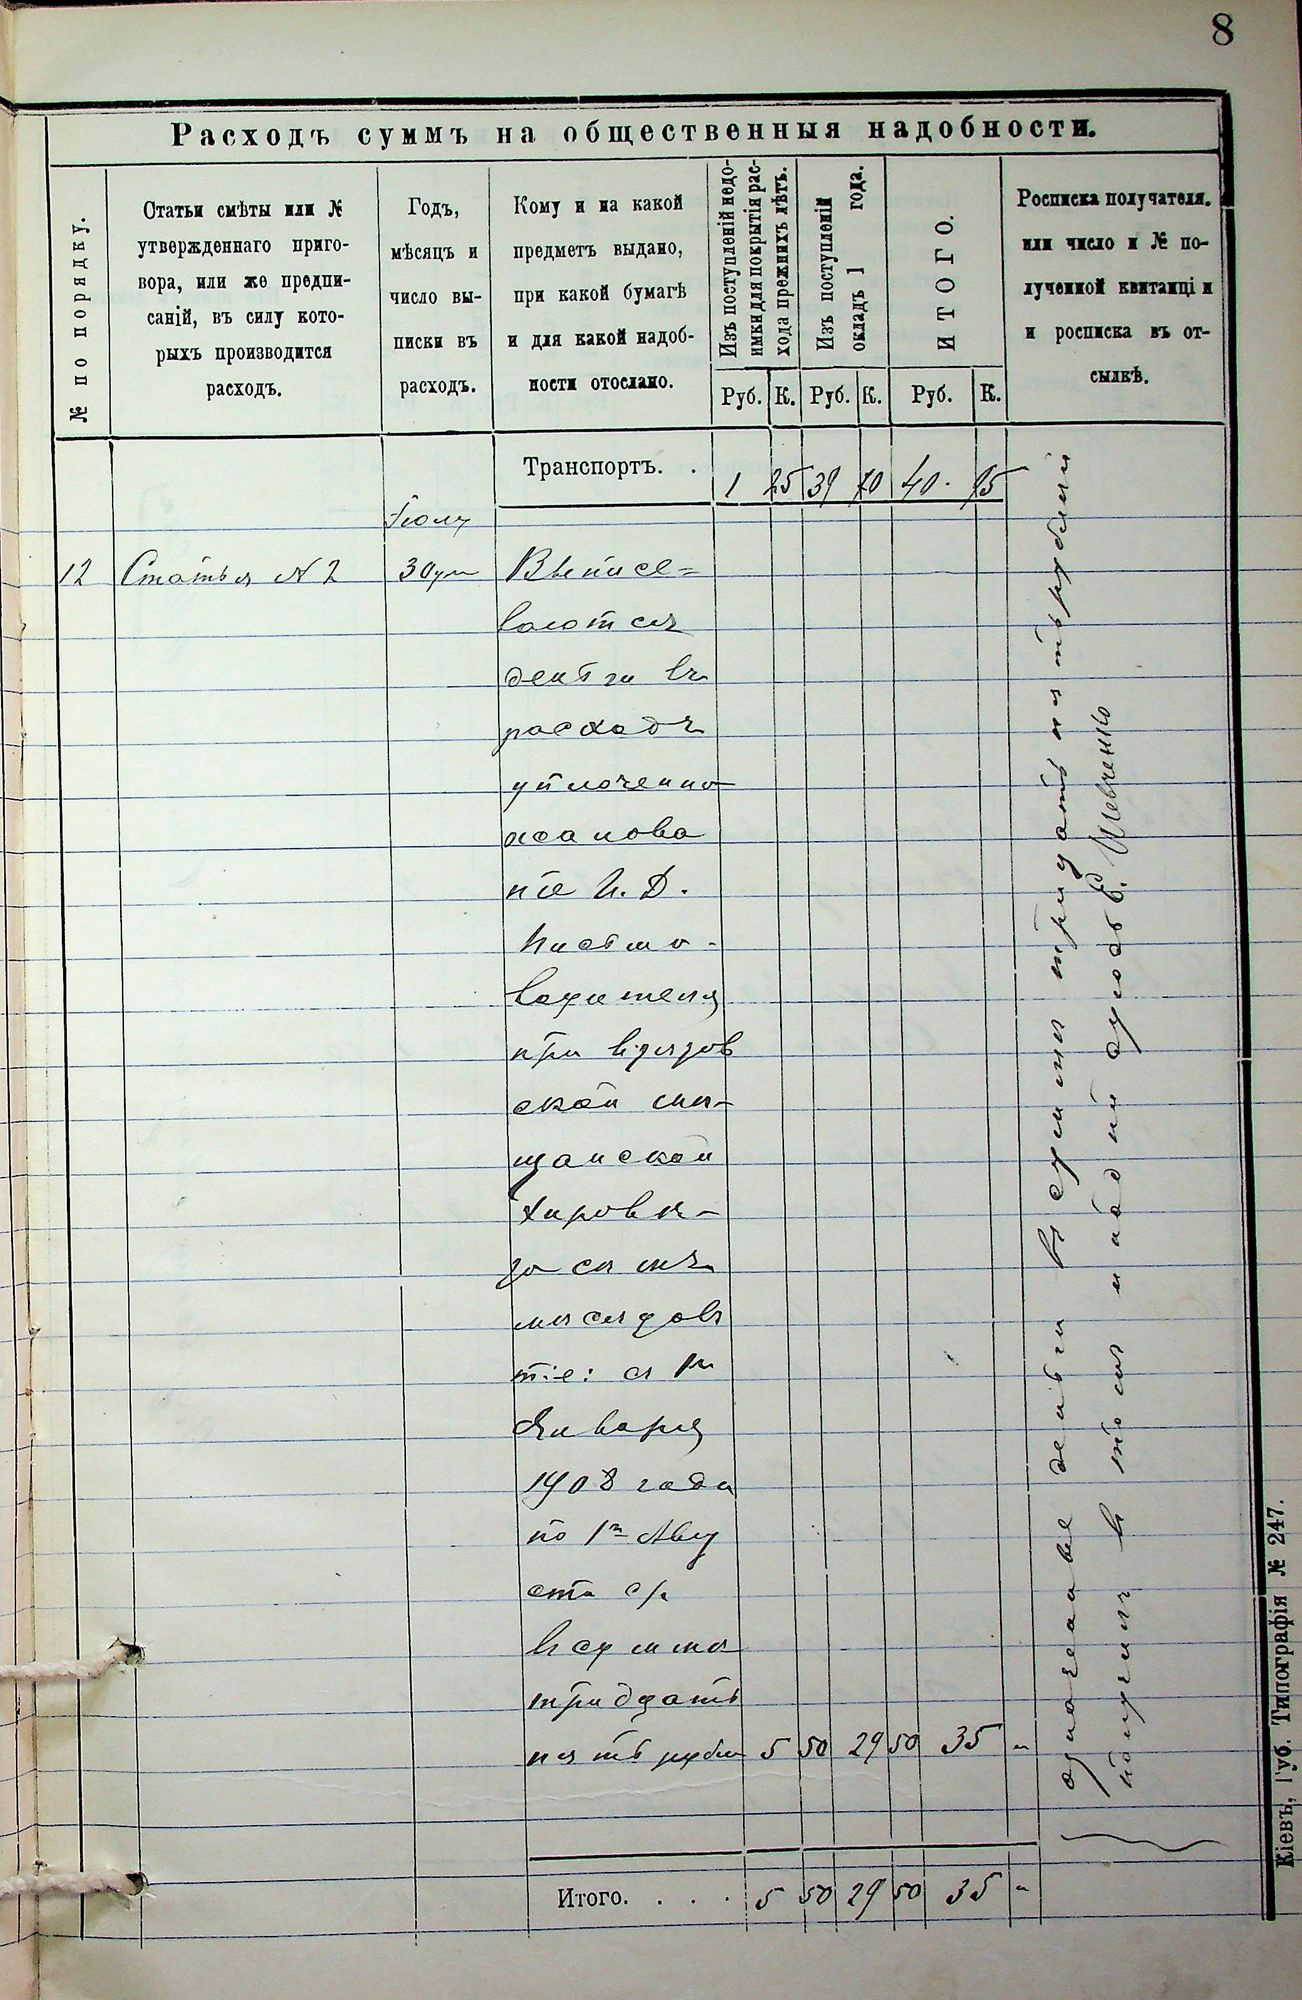 8
Расходъ суммъ на общественныя надобности.
№ по порядку.
Статьи смѣты или №
утвержденнаго приго-
вора, или же предпи-
саній, въ силу кото-
рыхъ производится
расходъ.
Годъ,
мѣсяцъ и
число вы-
писки въ
расходъ.
Кому и на какой
предметъ выдано,
при какой бумагѣ
и для какой надоб-
ности отослано.
Изъ поступленій недо-
имки для покрытія рас-
хода прежнихъ лѣтъ.
Изъ поступленій
окладъ 1 года.
ИТОГО.
Росписка получателя.
или число и № по-
лученной квитанціи
и росписка въ от-
сылкѣ.
Руб. К. Руб. К. Руб. К.
Транспортъ. . 1 25 39 70 40 95
Іюля
12 Статья № 2 30 дня Выписы=
ваются
деньги въ
расходъ
уплоченно
жалова
ніе И. Д.
Письмо-
водителя
при
ской мѣ-
щанской
управѣ-
за семь
мѣсяцовъ
т:е: съ 1го
Января
1908 года
по 1е Авгу
ста с/г
въ сумме
тридцать
пять рубл 5 50 29 50 35 "
Итого. . . . 5 50 29 50 35 "
означеные деньги въ сумме тридцать пять рублей
получилъ в томъ и подпи суюсь Е. Шевченко
Кіевъ, Губ. Типографія № 247.